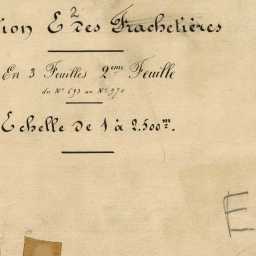 ion E² des Frachetières
En 3 Feuilles 2ème Feuille
du Nº 593 au Nº 970
Echelle de 1 à 2.500m.
E